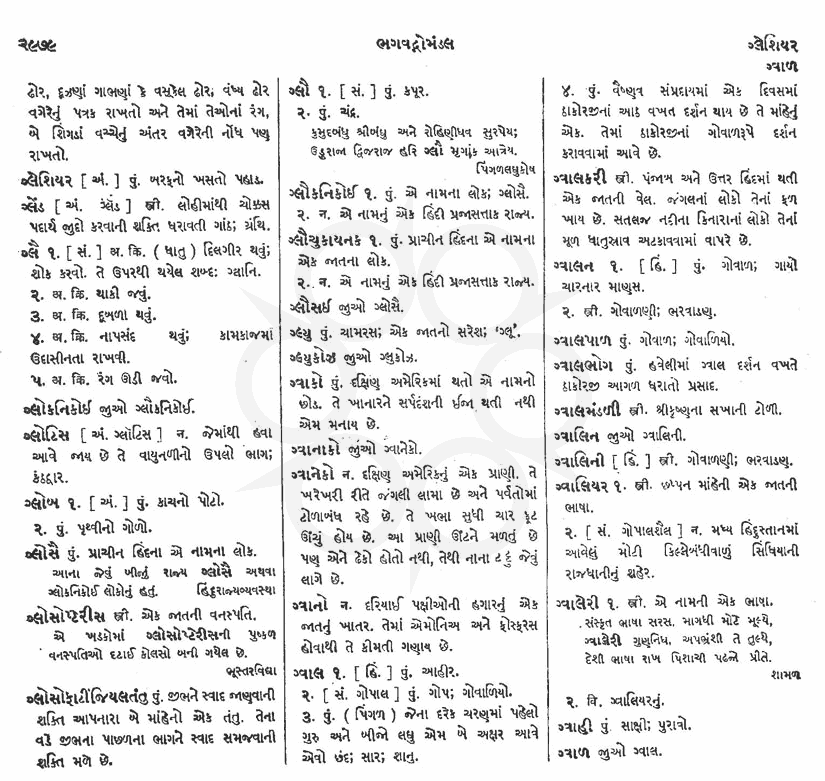 ૨૯૭૯
ભગવદ્ગોમંડલ
ગ્લેશિયર
ગ્વાળ
ઢોર, દૂઝણાં ગાભણાં કે વસૂકેલ ઢોર; વંધ્ય ઢોર
વગેરેનું પત્રક રાખતો અને તેમાં તેઓનાં રંગ,
બે શિંગડાં વચ્ચેનું અંતર વગેરેની નોંધ પણ
રાખતો.
ગ્લેશિયર [ અં. ] પું. બરફનો ખસતો પહાડ.
ગ્લૅંડ [ અં. ગ્લૅંડ ] સ્ત્રી. લોહીમાંથી ચોક્કસ
પદાર્થ જુદો કરવાની શક્તિ ધરાવતી ગાંઠ; ગ્રંથિ.
ગ્લૈ ૧. [ સં. ] અ. ક્રિ. ( ધાતુ ) દિલગીર થવું;
શોક કરવો. તે ઉપરથી થયેલ શબ્દ: ગ્લાનિ.
૨. અ. ક્રિ. થાકી જવું.
૩. અ. ક્રિ. દૂબળા થવું.
૪. અ. ક્રિ. નાપસંદ થવું; કામકાજમાં
ઉદાસીનતા રાખવી.
૫. અ. ક્રિ. રંગ ઊડી જવો.
ગ્લોકનિકોઈ જુઓ ગ્લૌકનિકોઈ.
ગ્લોટિસ [ અં. ગ્લૉટિસ ] ન. જેમાંથી હવા
આવે જાય છે તે વાયુનળીનો ઉપલો ભાગ;
કંઠદ્વાર.
ગ્લોબ ૧. [ અં. ] પું. કાચનો પોટો.
૨. પું. પૃથ્વીનો ગોળો.
ગ્લોસૈ પું. પ્રાચીન હિંદના એ નામના લોક.
આના જેવું બીજું રાજ્ય ગ્લોસૈ અથવા
ગ્લોકનિકોઈ લોકોનું હતું. હિંદુરાજ્યવ્યવસ્થા
ગ્લોસોપ્ટેરીસ સ્ત્રી. એક જાતની વનસ્પતિ.
એ ખડકોમાં ગ્લોસોપ્ટેરીસની પુષ્કળ
વનસ્પતિઓ દટાઈ કોલસો બની ગયેલ છે.
ભૂસ્તરવિદ્યા
ગ્લોસોફાટીંજિયલતંતુ પું. જીભને સ્વાદ જાણવાની
શક્તિ આપનારા બે માંહેનો એક તંતુ. તેના
વડે જીભના પાછળના ભાગને સ્વાદ સમજવાની
શક્તિ મળે છે.
ગ્લૌ ૧. [ સં. ] પું. કપૂર.
૨. પું. ચંદ્ર.
કુમુદબંધુ શ્રીબંધુ અને રોહિણીધવ સુરપેય;
ઉડુરાજ દ્વિજરાજ હરિ ગ્લૌ મૃગાંક આત્રેય.
પિંગળલઘુકોષ
ગ્લૌકનિકોઈ ૧. પું. એ નામના લોક; ગ્લોસૈ.
૨. ન. એ નામનું એક હિંદી પ્રજાસત્તાક રાજ્ય.
ગ્લૌચુકાયનક ૧. પું. પ્રાચીન હિંદના એ નામના
એક જાતના લોક.
૨. ન. એ નામનું એક હિંદી પ્રજાસત્તાક રાજ્ય.
ગ્લૌસઈ જુઓ ગ્લોસૈ.
ગ્લ્યુ પું. ચામરસ; એક જાતનો સરેશ; ‘ગ્લૂ’.
ગ્લ્યુકોઝ જુઓ ગ્લુકોઝ.
ગ્વાકો પું. દક્ષિણ અમેરિકમાં થતો એ નામનો
છોડ. તે ખાનારને સર્પદંશની ઈજા થતી નથી
એમ મનાય છે.
ગ્વાનાકો જુઓ ગ્વાનેકો.
ગ્વાનેકો ન. દક્ષિણ અમેરિકનું એક પ્રાણી. તે
ખરેખરી રીતે જંગલી લામા છે અને પર્વતોમાં
ટોળાબંધ રહે છે. તે ખભા સુધી ચાર ફૂટ
ઊંચું હોય છે. આ પ્રાણી ઊંટને મળતું છે
પણ એને ઢેકો હોતો નથી, તેથી નાના ટટ્ટુ જેવું
લાગે છે.
ગ્વાનો ન. દરિયાઈ પક્ષીઓની હગારનું એક
જાતનું ખાતર. તેમાં એમોનિઅ અને ફોસ્ફરસ
હોવાથી તે કીમતી ગણાય છે.
ગ્વાલ ૧. [ હિં. ] પું. આહીર.
૨. [ સં. ગોપાલ ] પું. ગોપ; ગોવાળિયો.
૩. પું. ( પિંગળ ) જેના દરેક ચરણમાં પહેલો
ગુરુ અને બીજો લઘુ એમ બે અક્ષર આવે
એવો છંદ; સાર; શાનુ.
૪. પું. વૈષ્ણવ સંપ્રદાયમાં એક દિવસમાં
ઠાકોરજીનાં આઠ વખત દર્શન થાય છે તે માંહેનું
એક. તેમાં ઠાકોરજીનાં ગોવાળરૂપે દર્શન
કરાવવામાં આવે છે.
ગ્વાલકરી સ્ત્રી. પંજાબ અને ઉત્તર હિંદમાં થતી
એક જાતની વેલ. જંગલનાં લોકો તેનાં ફળ
ખાય છે. સતલજ નદીના કિનારાનાં લોકો તેનાં
મૂળ ધાતુસ્રાવ અટકાવવામાં વાપરે છે.
ગ્વાલન ૧. [ હિં. ] પું. ગોવાળ; ગાયો
ચારનાર માણસ.
૨. સ્ત્રી. ગોવાળણી; ભરવાડણ.
ગ્વાલપાળ પું. ગોવાળ; ગોવાળિયો.
ગ્વાલભોગ પું. હવેલીમાં ગ્વાલ દર્શન વખતે
ઠાકોરજી આગળ ધરાતો પ્રસાદ.
ગ્વાલમંડળી સ્ત્રી. શ્રીકૃષ્ણના સખાની ટોળી.
ગ્વાલિન જુઓ ગ્વાલિની.
ગ્વાલિની [ હિં. ] સ્ત્રી. ગોવાળણી; ભરવાડણ.
ગ્વાલિયર ૧. સ્ત્રી. છપ્પન માંહેની એક જાતની
ભાષા.
૨. [ સં. ગોપાલશૈલ ] ન. મધ્ય હિંદુસ્તાનમાં
આવેલું મોટી કિલ્લેબંધીવાળું સિંધિયાની
રાજધાનીનું શહેર.
ગ્વાલેરી ૧. સ્ત્રી. એ નામની એક ભાષા.
સંસ્કૃત ભાષા સરસ, માગધી મોટે મૂલ્યે,
ગ્વાલેરી ગુણનિધ, અપભ્રંશી તે તુલ્યે,
દેશી ભાષા રાખ પિશાચી પઢને પ્રીતે.
શામળ
૨. વિ. ગ્વાલિયરનું.
ગ્વાહી પું. સાક્ષી; પુરાવો.
ગ્વાળ જુઓ ગ્વાલ.